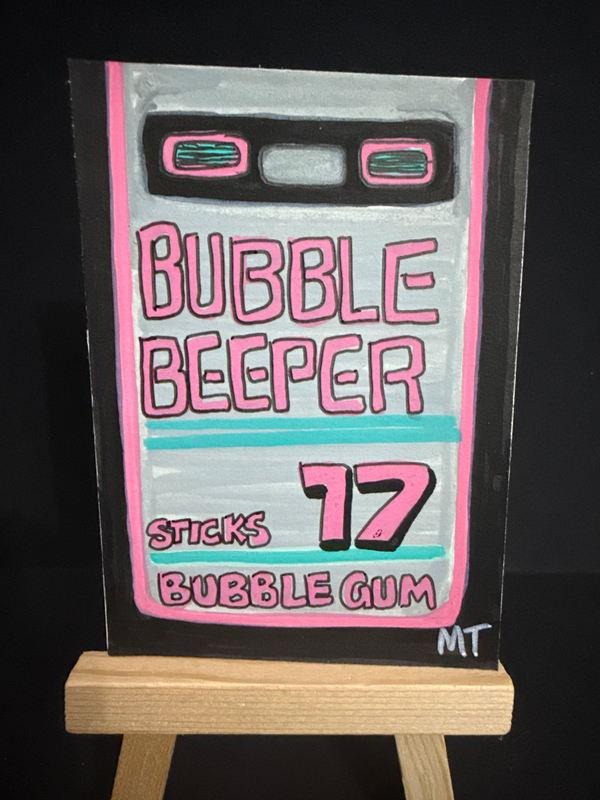 BUBBLE
BEEPER
STICKS 17
BUBBLE GUM
MT